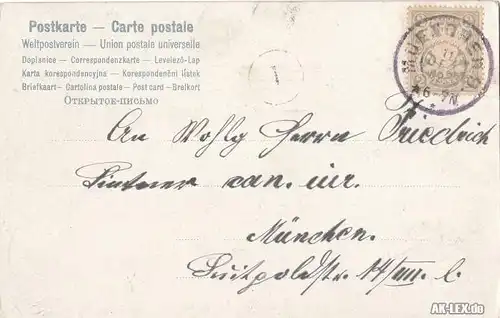 Postkarte – Carte postale
Weltpostverein – Union postale universelle
Dopisnice – Correspondenzkarte – Levelező-Lap
Karta korespondencyjna – Korespondenční lístek
Briefkaart – Cartolina postale – Post card – Brefkort
Открытое-письмо
MUENCHEN
6-7N
An Wohlg Herrn Friedrich
Lintner can. iur.
München.
Luitpoldstr. 14/III. l.
AK-LEX.de